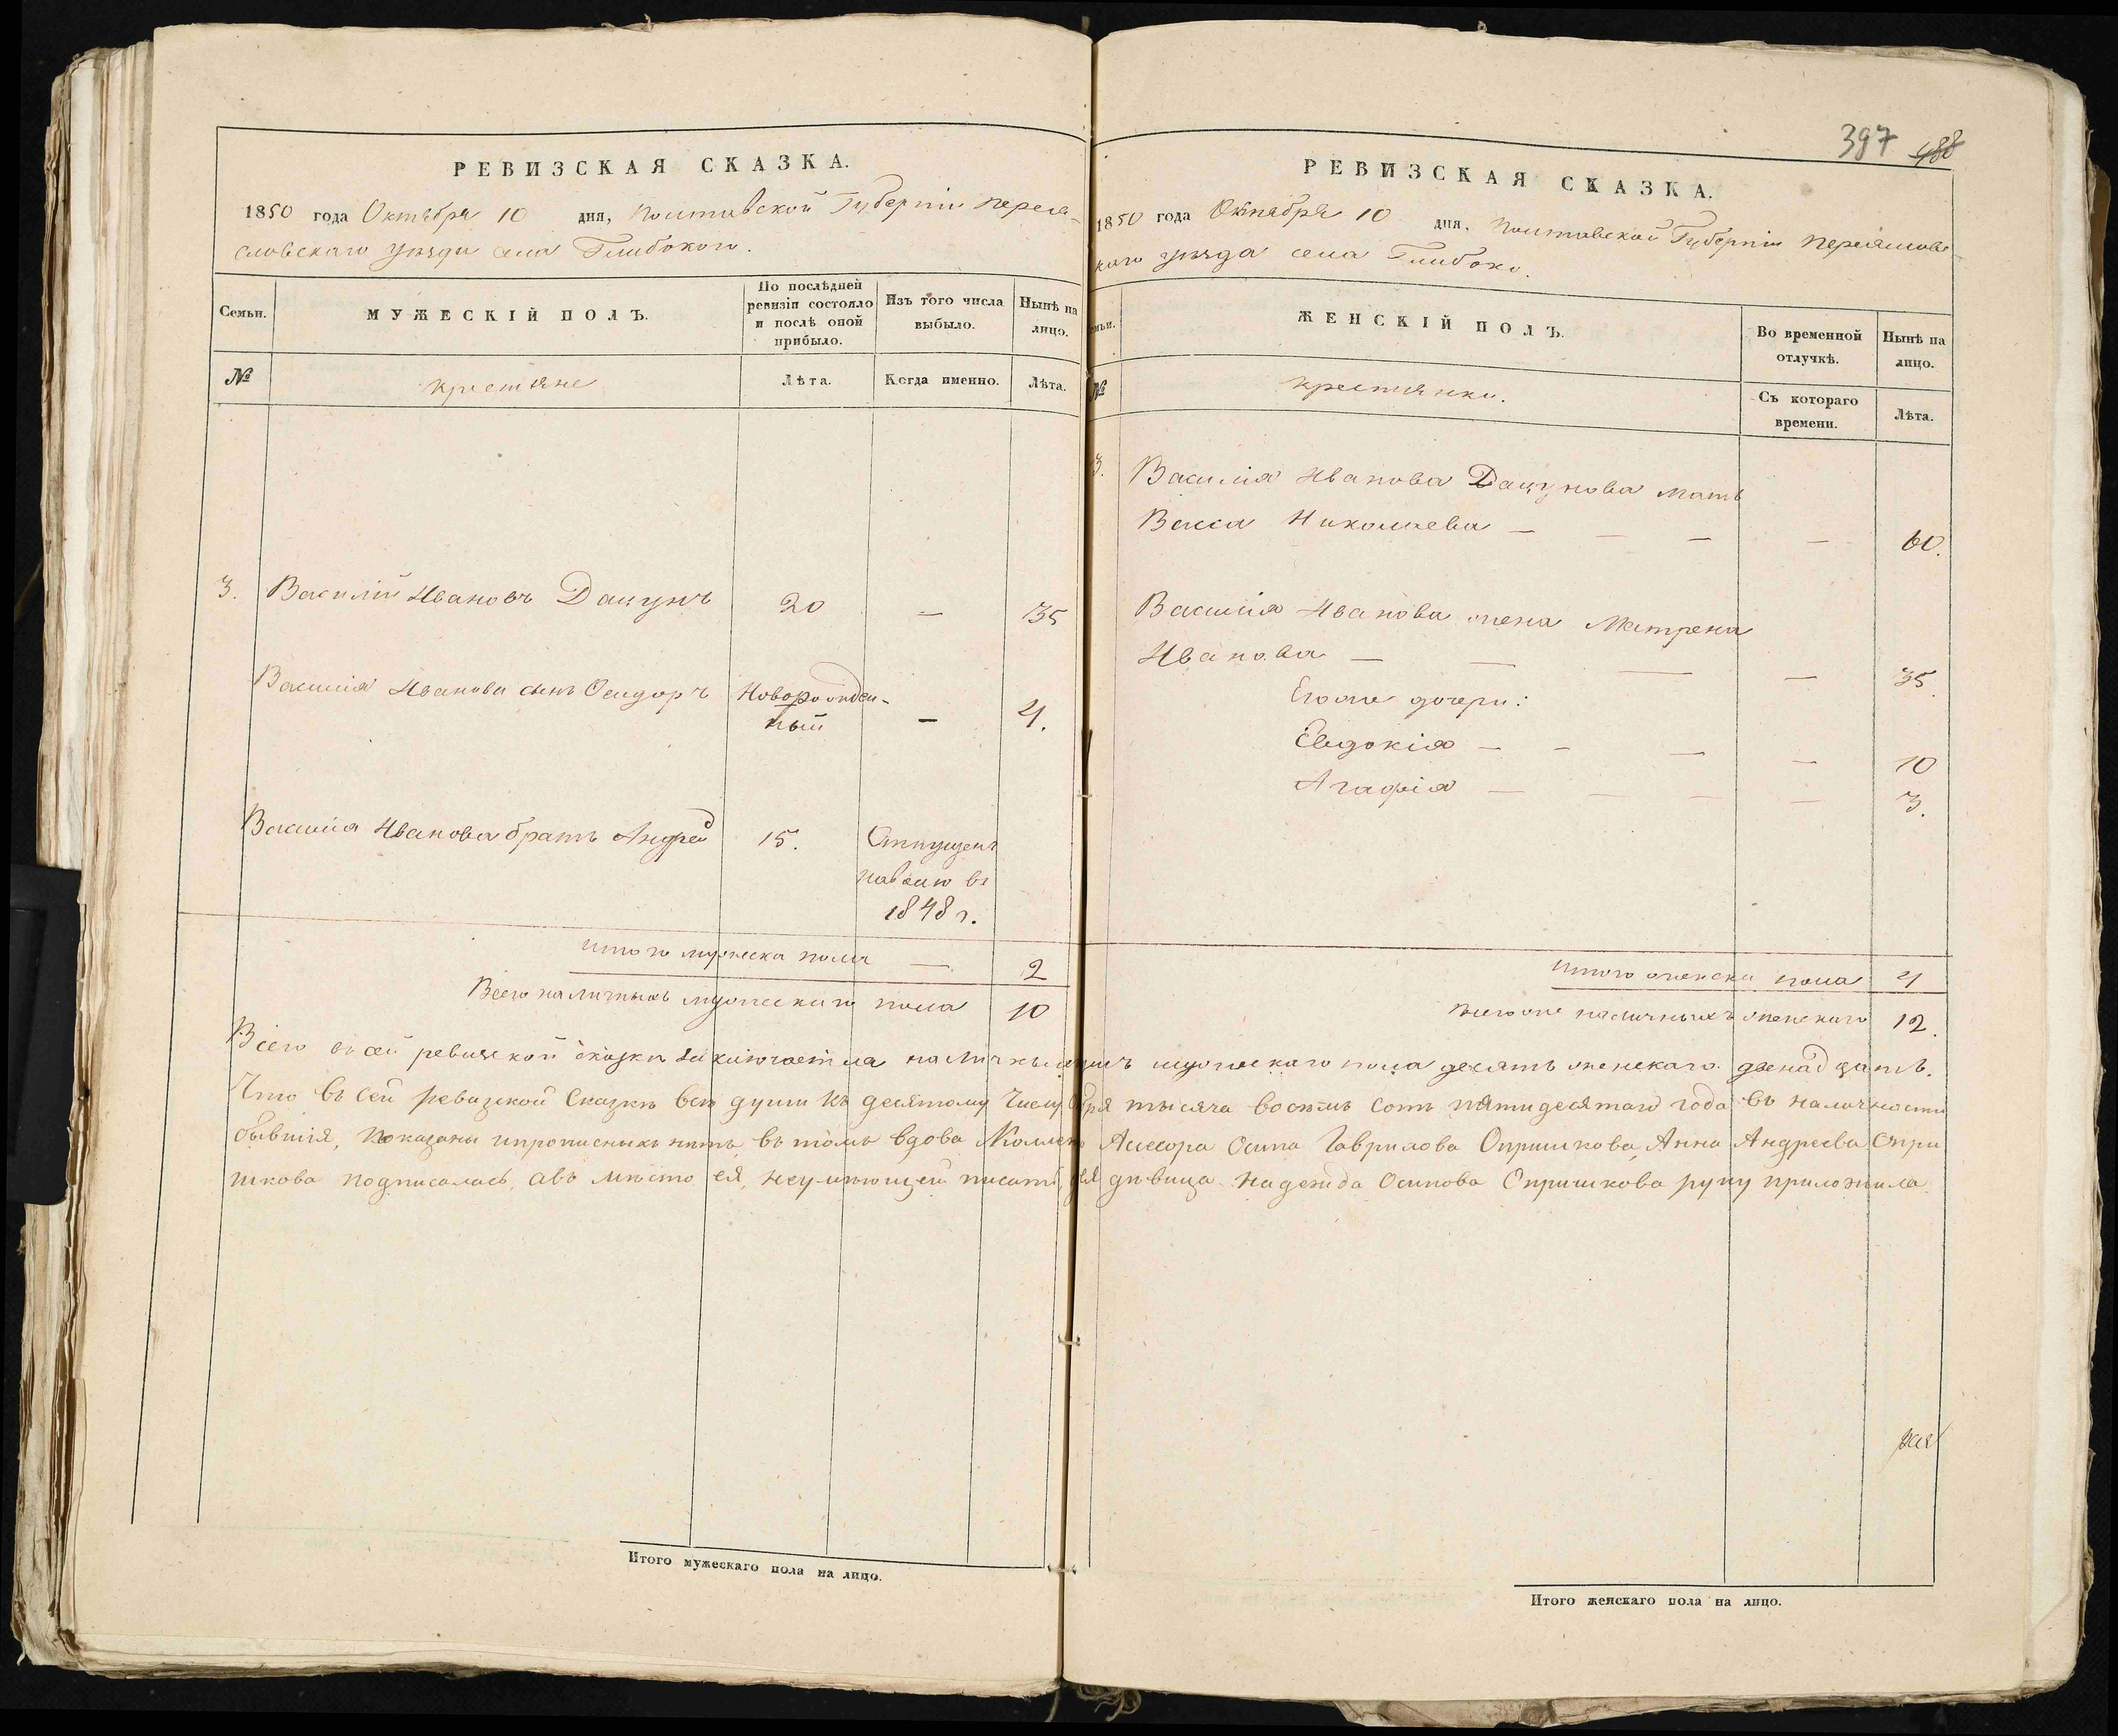 РЕВИЗСКАЯ СКАЗКА.
1850 года Октября 10 дня, Полтавской Губерніи Перея-
словскаго уѣзда села Глибокого.
Семьи.
МУЖЕСКІЙ ПОЛЪ.
По послѣдней
ревизіи состояло
и послѣ оной
прибыло.
Изъ того числа
выбыло.
Нынѣ на
лицо.
№
крестьяне
Лѣта.
Когда именно.
Лѣта.
3. Василій Ивановъ Дацунъ 20 — 35
Василія Иванова сынъ Сидоръ Новорожден-
ный — 4.
Василія Иванова братъ Андрей 15. Отпущенъ
наволю въ
1848 г.
Итого мужеска пола — 2
Всего наличныхъ мужескаго пола 10
397 488
РЕВИЗСКАЯ СКАЗКА.
1850 года Октября 10 дня, Полтавской Губерніи Переяслов-
каго уѣзда села Глибоко.
мьи.
ЖЕНСКІЙ ПОЛЪ.
Во временной
отлучкѣ.
Нынѣ на
лицо.
№
крестьянки.
Съ котораго
времени.
Лѣта.
3. Василія Иванова Дацунова мать
Васса Николаева — — — — 60.
Василія Иванова жена Матрена
Иванова — — — — 35.
Егоже дочери:
Евдокія — — — — 10
Агафія — — — — 3.
Итого женска пола 4
Всегоже наличныхъ женскаго 12.
Всего в сей ревизской сказки заключается наличныхъ мужескаго пола десять женскаго двенадцать.
Что въ сей ревизской Сказкѣ всѣ души къ десятому Числу тысяча восемь сотъ пятидесятаго года въ наличности
бывшія, показаны ипрописныхъ нѣтъ, въ томъ вдова Асессора Осипа Гаврилова Опришкова, Анна Андреева Опри
шкова подписалась, авъ мѣсто ея, неумѣющей писать, дѣвица Надежда Осипова Опришкова руку приложила
Итого мужескаго пола на лицо.
Итого женскаго пола на лицо.